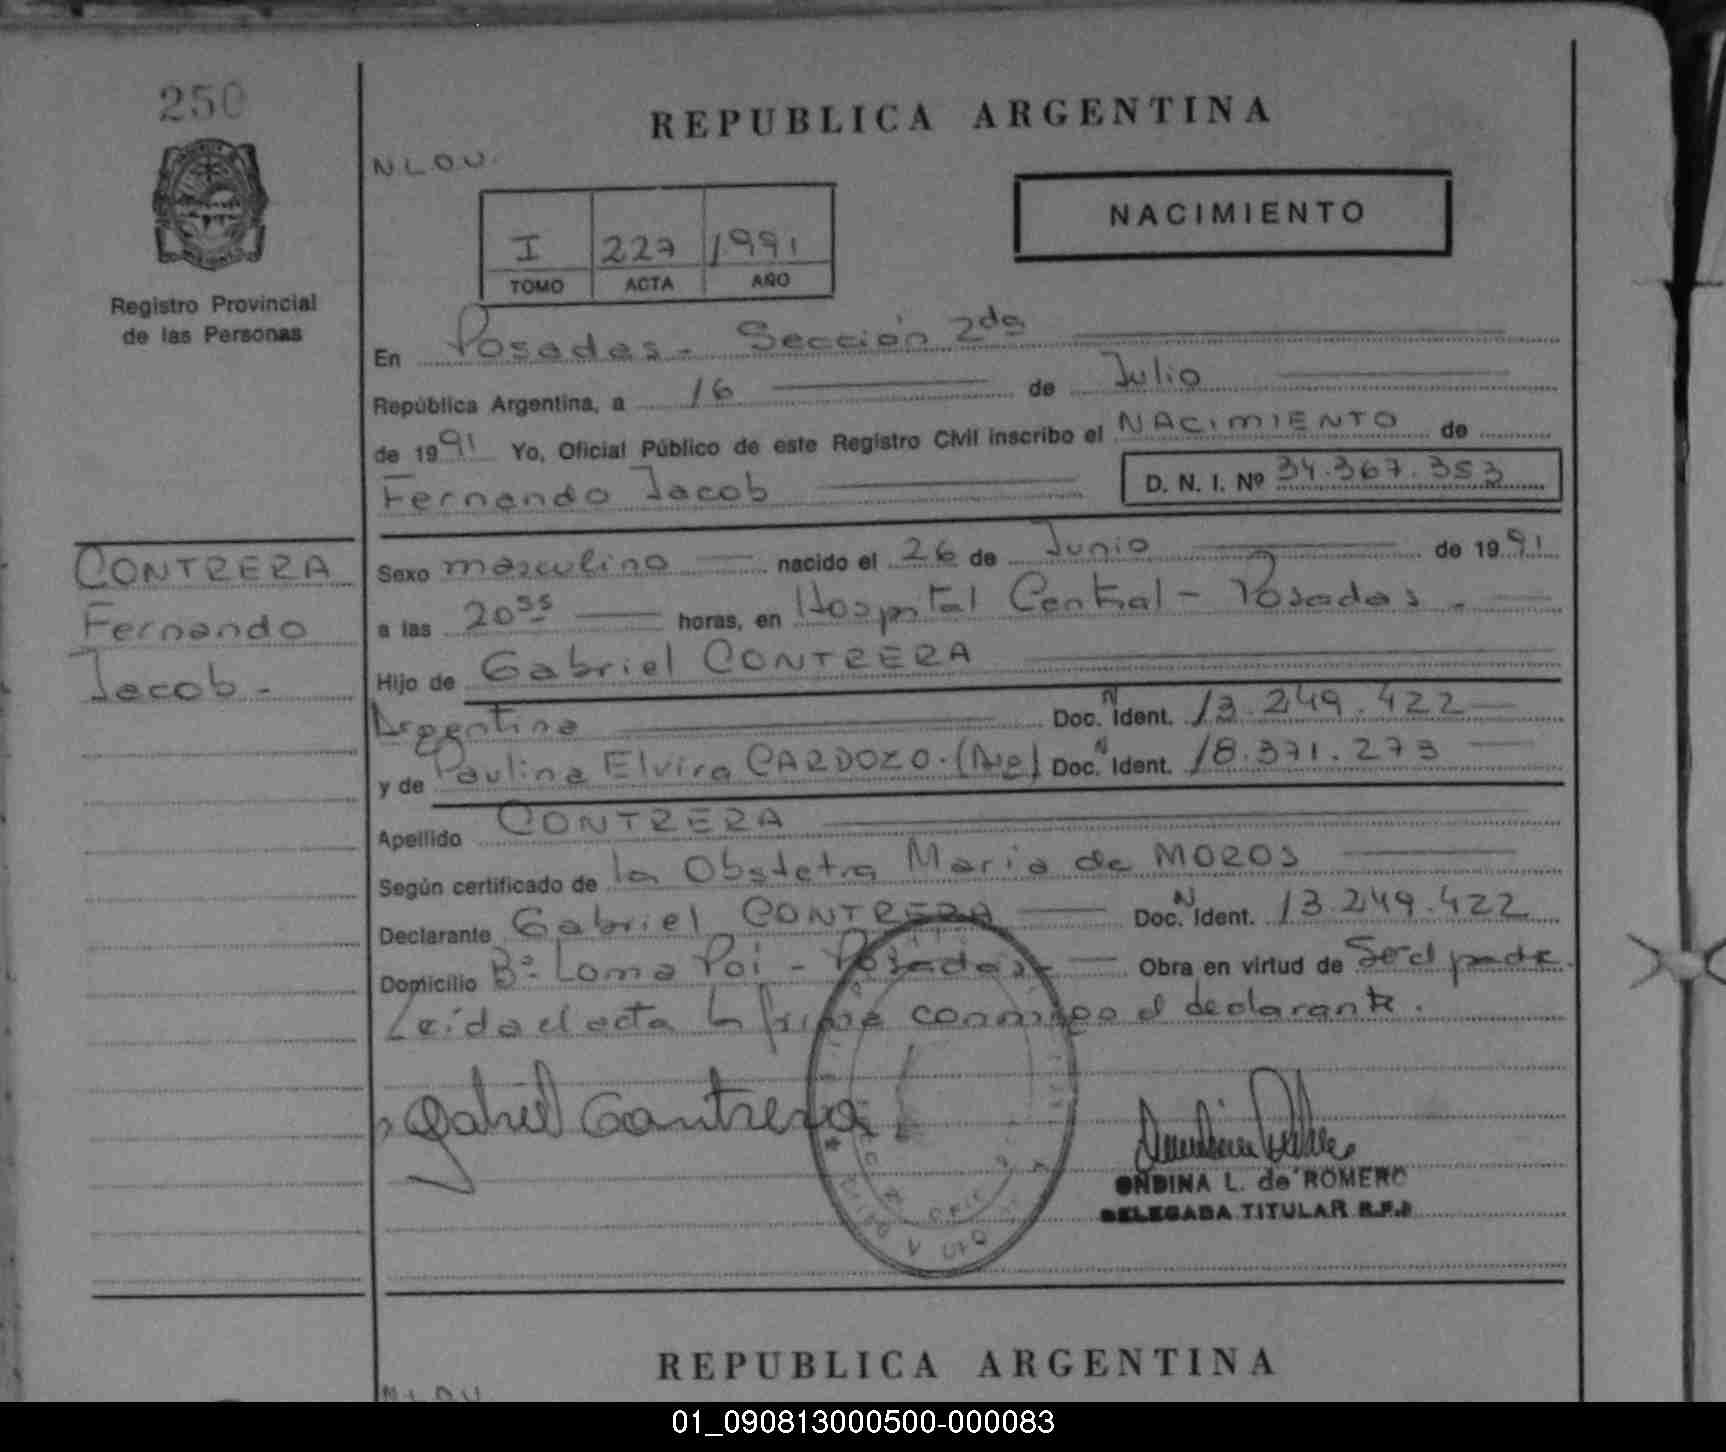 250
REPUBLICA ARGENTINA
N.L.O.U.
NACIMIENTO
I 227 1991
TOMO ACTA AÑO
Registro Provincial
de las Personas
En Posadas - Sección 2da
República Argentina, a 16 de Julio
de 1991 Yo, Oficial Público de este Registro Civil inscribo el NACIMIENTO de
Fernando Jacob D. N. I. Nº 34.367.353
CONTRERA
Fernando
Jacob -
Sexo masculino nacido el 26 de Junio de 1991
a las 20 55 horas, en Hospital Central - Posadas -
Hijo de Gabriel CONTRERA
Argentino Doc. N Ident. 13.249.422
y de Paulina Elvira CARDOZO. (Arg) Doc. N Ident. 18.371.273
Apellido CONTRERA
Según certificado de la Obstetra Maria de MOROS
Declarante Gabriel CONTRERA Doc. N Ident. 13.249.422
Domicilio Bº Loma Poi - Posadas - Obra en virtud de Ser el padre.
Leida el acta la firma conmigo el declarante.
Gabriel Contrera
ONDINA L. de ROMERO
DELEGADA TITULAR R.P.P
REPUBLICA ARGENTINA
N.L.O.U.
01_090813000500-000083